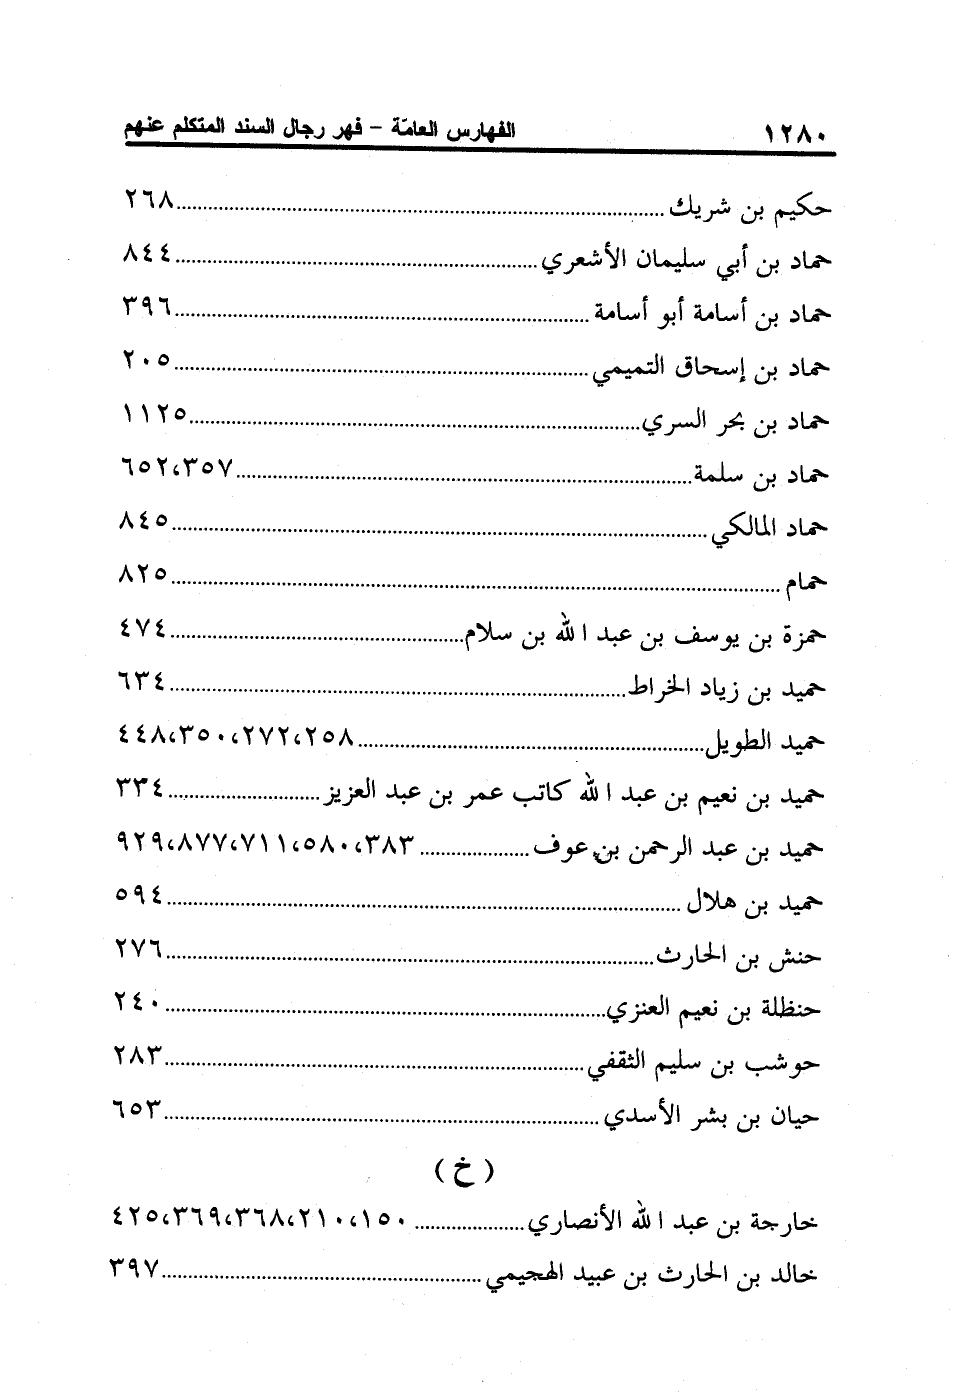 ١٢٨٠ الفهارس العامّة - فهر رجال السند المتكلم عنهم
حكيم بن شريك ٢٦٨
حماد بن أبي سليمان الأشعري ٨٤٤
حماد بن أسامة أبو أسامة ٣٩٦
حماد بن إسحاق التميمي ٢٠٥
حماد بن بحر السري ١١٢٥
حماد بن سلمة ٦٥٢،٣٥٧
حماد المالكي ٨٤٥
حمام ٨٢٥
حمزة بن يوسف بن عبد الله بن سلام ٤٧٤
حميد بن زياد الخراط ٦٣٤
حميد الطويل ٤٤٨،٣٥٠،٢٧٢،٢٥٨
حميد بن نعيم بن عبد الله كاتب عمر بن عبد العزيز ٣٣٤
حميد بن عبد الرحمن بن عوف ٩٢٩،٨٧٧،٧١١،٥٨٠،٣٨٣
حميد بن هلال ٥٩٤
حنش بن الحارث ٢٧٦
حنظلة بن نعيم العنزي ٢٤٠
حوشب بن سليم الثقفي ٢٨٣
حيان بن بشر الأسدي ٦٥٣
(خ)
خارجة بن عبد الله الأنصاري ٤٢٥،٣٦٩،٣٦٨،٢١٠،١٥٠
خالد بن الحارث بن عبيد الهجيمي ٣٩٧